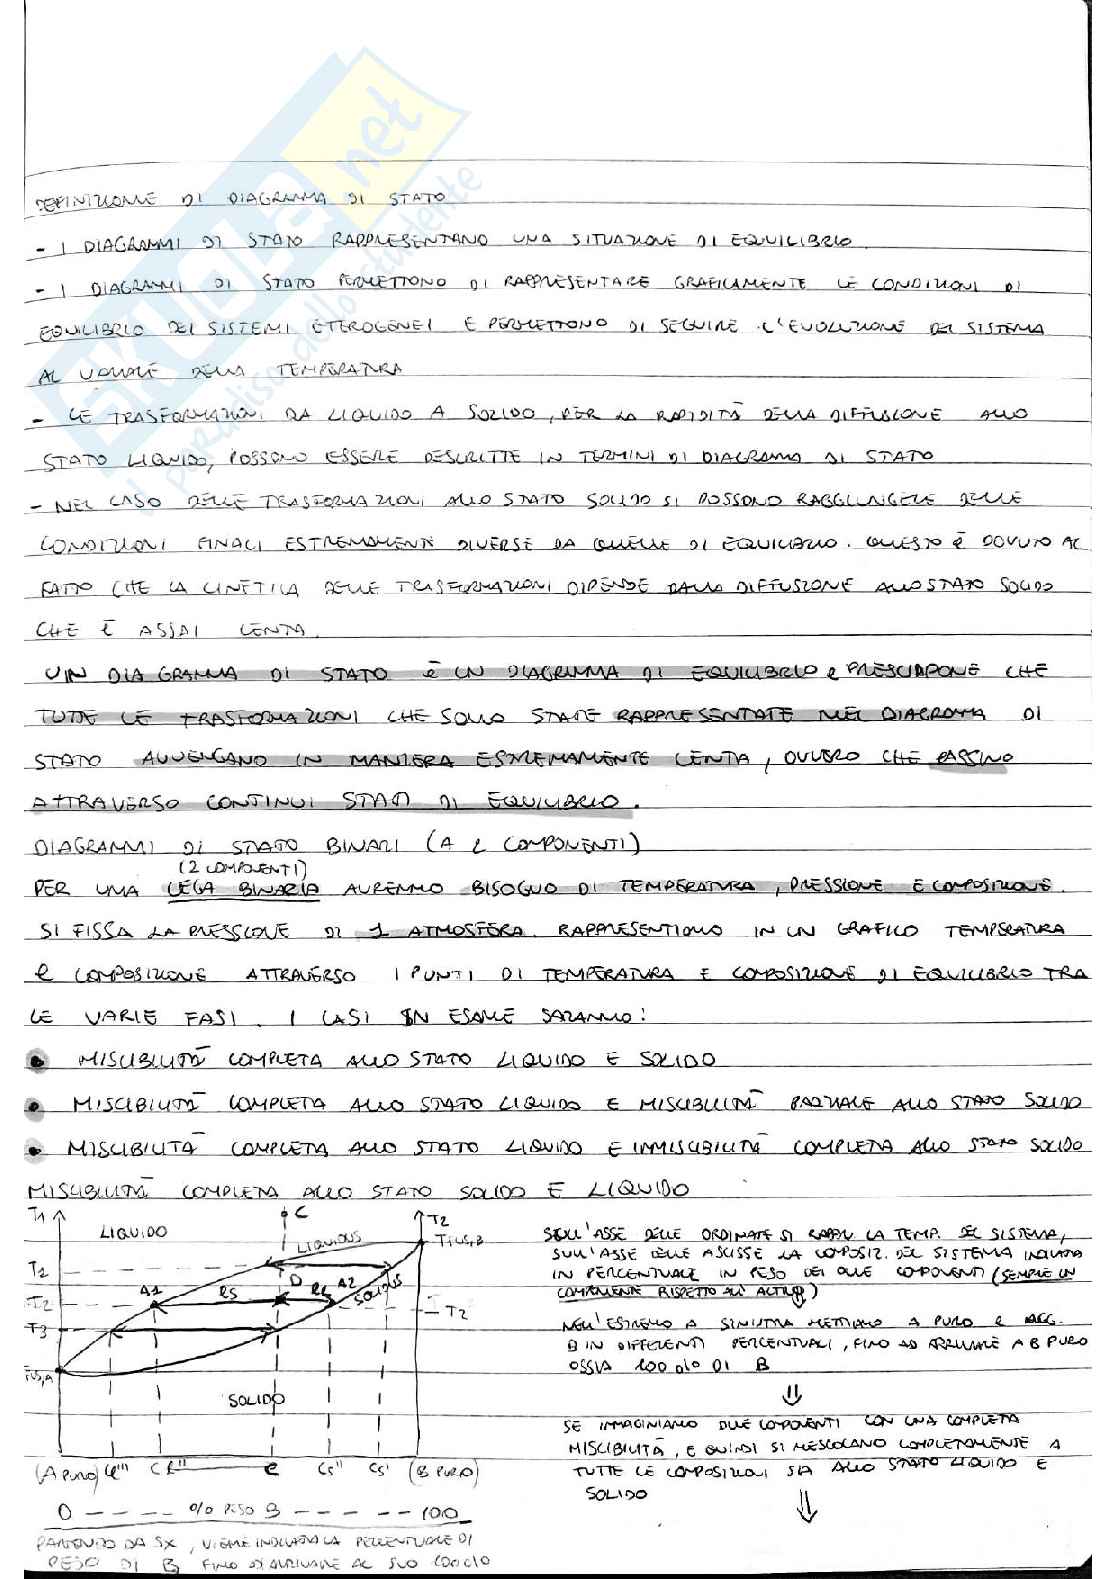 DEFINIZIONE DI DIAGRAMMA DI STATO
- I DIAGRAMMI DI STATO RAPPRESENTANO UNA SITUAZIONE DI EQUILIBRIO
- I DIAGRAMMI DI STATO PERMETTONO DI RAPPRESENTARE GRAFICAMENTE LE CONDIZIONI DI
EQUILIBRIO DEI SISTEMI ETEROGENEI E PERMETTONO DI SEGUIRE L'EVOLUZIONE DEL SISTEMA
AL VARIARE DELLA TEMPERATURA
- LE TRASFORMAZIONI DA LIQUIDO A SOLIDO, PER LA RAPIDITÀ DELLA DIFFUSIONE ALLO
STATO LIQUIDO, POSSONO ESSERE DESCRITTE IN TERMINI DI DIAGRAMMA DI STATO
- NEL CASO DELLE TRASFORMAZIONI ALLO STATO SOLIDO SI POSSONO RAGGIUNGERE DELLE
CONDIZIONI FINALI ESTREMAMENTE DIVERSE DA QUELLE DI EQUILIBRIO. QUESTO È DOVUTO AL
FATTO CHE LA CINETICA DELLE TRASFORMAZIONI DIPENDE DALLA DIFFUSIONE ALLO STATO SOLIDO
CHE È ASSAI LENTA.
UN DIAGRAMMA DI STATO È UN DIAGRAMMA DI EQUILIBRIO e PRESUPPONE CHE
TUTTE LE TRASFORMAZIONI CHE SONO STATE RAPPRESENTATE NEL DIAGRAMMA DI
STATO AVVENGANO IN MANIERA ESTREMAMENTE LENTA, OVVERO CHE PASSINO
ATTRAVERSO CONTINUI STATI DI EQUILIBRIO.
DIAGRAMMI DI STATO BINARI (A 2 COMPONENTI)
(2 COMPONENTI)
PER UNA LEGA BINARIA AVREMMO BISOGNO DI TEMPERATURA, PRESSIONE E COMPOSIZIONE.
SI FISSA LA PRESSIONE DI 1 ATMOSFERA. RAPPRESENTIAMO IN UN GRAFICO TEMPERATURA
E COMPOSIZIONE ATTRAVERSO I PUNTI DI TEMPERATURA E COMPOSIZIONE DI EQUILIBRIO TRA
LE VARIE FASI. I CASI IN ESAME SARANNO:
• MISCIBILITÀ COMPLETA ALLO STATO LIQUIDO E SOLIDO
• MISCIBILITÀ COMPLETA ALLO STATO LIQUIDO E MISCIBILITÀ PARZIALE ALLO STATO SOLIDO
• MISCIBILITÀ COMPLETA ALLO STATO LIQUIDO E IMMISCIBILITÀ COMPLETA ALLO STATO SOLIDO
MISCIBILITÀ COMPLETA ALLO STATO SOLIDO E LIQUIDO
T1 C T2
LIQUIDO LIQUIDUS TFUS,B
T2 D
A1 RS RL A2 SOLIDUS
T2 T2
T3
FUS,A
SOLIDO
(A PURO) CL'' CL'' C CS'' CS' (B PURO)
0 - - - - % PESO B - - - - - 100
PARTENDO DA SX, VIENE INDICATA LA PERCENTUALE DI
PESO DI B, FINO AD ARRIVARE AL SUO 100%
SULL'ASSE DELLE ORDINATE SI RAPPR. LA TEMP. DEL SISTEMA,
SULL'ASSE DELLE ASCISSE LA COMPOSIZ. DEL SISTEMA INDICATA
IN PERCENTUALE IN PESO DEI DUE COMPONENTI (SEMPRE UN
COMPONENTE RISPETTO ALL'ALTRO)
⇓
NELL'ESTREMO A SINISTRA METTIAMO A PURO E AGG.
B IN DIFFERENTI PERCENTUALI, FINO AD ARRIVARE A B PURO
OSSIA 100% DI B
⇓
SE IMMAGINIAMO DUE COMPONENTI CON UNA COMPLETA
MISCIBILITÀ, E QUINDI SI MESCOLANO COMPLETAMENTE A
TUTTE LE COMPOSIZIONI SIA ALLO STATO LIQUIDO E
SOLIDO
⇓
SKUOLA.net
il paradiso dello studente